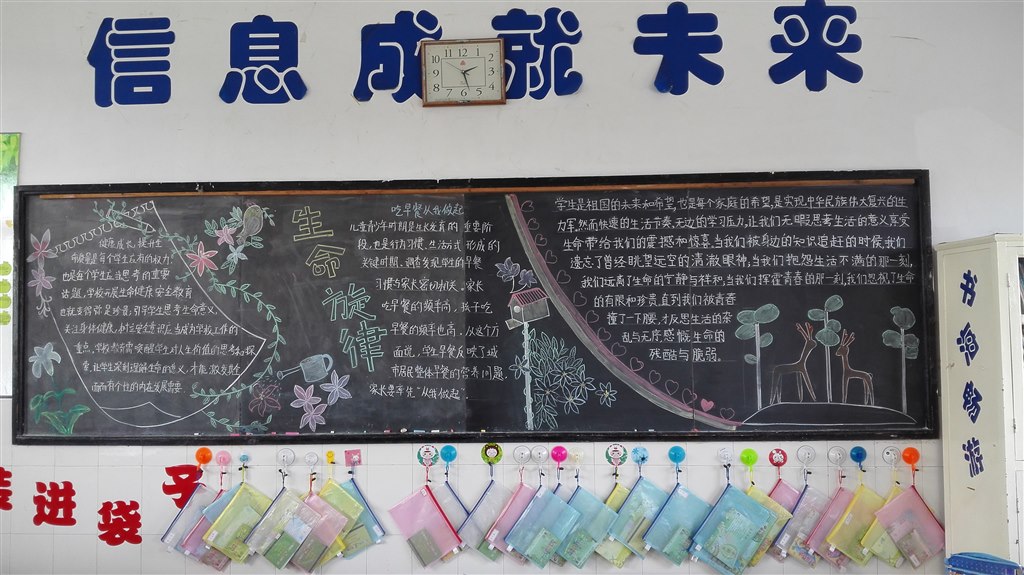 信息成就未来
10 11 12 1 2 3 4 5 6 7 8 9
生命旋律
健康成长,提升
命质量是每个学生应有的权力!
也是在学生应当思考的重要
话题,学校开展生命健康安全教育
引导学生思考生命意义,
关注身体健康,树立学生意识应当成为学校工作的
重点,学校教育需唤醒学生对人生价值的思考和探
索,让学生深刻理解生命的意义,才能激发其全
面而有个性的内在发展需要.
吃早餐从我做起
儿童青少年时期是生长发育的重要阶
段,也是行为习惯、生活方式形成的
关键时期,调查发现学生的早餐
习惯与家长密切相关,家长
吃早餐的频率高,孩子吃
早餐的频率也高,从这个方
面说,学生早餐反映了城
市居民整体早餐的营养问题.
家长要率先“从我做起.
学生是祖国的未来和希望,也是每个家庭的希望,是实现中华民族伟大复兴的生
力军,然而快速的生活节奏,无边的学习压力,让我们无暇思考生活的意义,享受
生命带给我们的震撼和惊喜,当我们被身边的知识追赶的时候,我们
遗忘了曾经眺望远空的清澈眼神,当我们抱怨生活不满的那一刻,
我们远离了生命的宁静与祥和,当我们挥霍青春的那一刻,我们忽视了生命
的有限和珍贵,直到我们被青春
撞了一下腰,才反思生活的杂
乱与无序,感慨生命的
残酷与脆弱。
书海畅游
进袋子